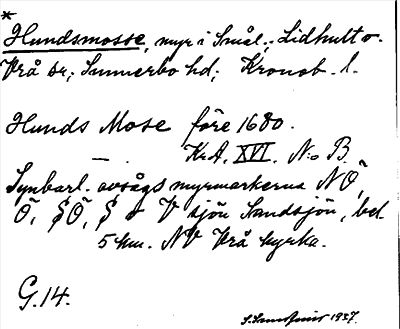 *
Hundsmosse, myr i Smål.; Lidhult o.
Vrå sr; Sunnerbo hd; Kronob. l.
Hunds Mose före 1680.
— KrA. XVI. N:o B.
Synbarl. avsågs myrmarkerna NÖ,
Ö, SÖ, S o V sjön Sandsjön, bel.
5 km. NV Vrå kyrka.
G.14.
1937.